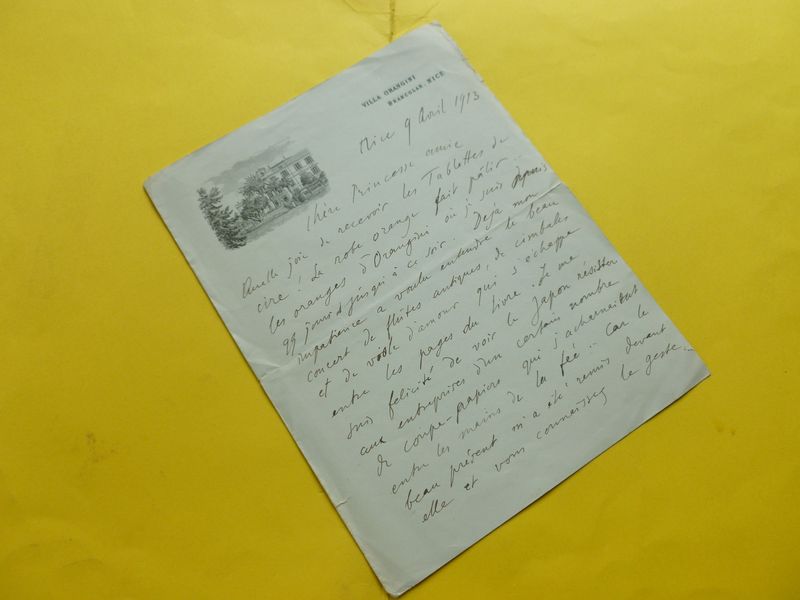 VILLA ORANGINI
BRANCOLAR. NICE
Nice 9 Avril 1913
Chère Princesse amie
Quelle joie de recevoir les Tablettes de
cire ! La robe orange fait pâlir
les oranges d'Orangini où je suis depuis
jours et jusqu'à ce soir. Déjà mon
impatience a voulu entendre le beau
concert de flûtes antiques, de cimbales
et de viole d'amour qui s'échappe
entre les pages du livre. Je me
suis félicité de voir le Japon résister
aux entreprises d'un certain nombre
de coupe-papiers qui s'acharnaient
entre les mains de la fée... car le
beau présent m'a été remis devant
elle et vous connaissez le geste...